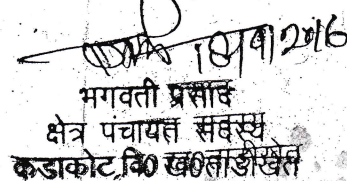 भगवती प्रसाद
क्षेत्र पंचायत सदस्य
कडाकोट, वि0 ख0 ताडीखेत